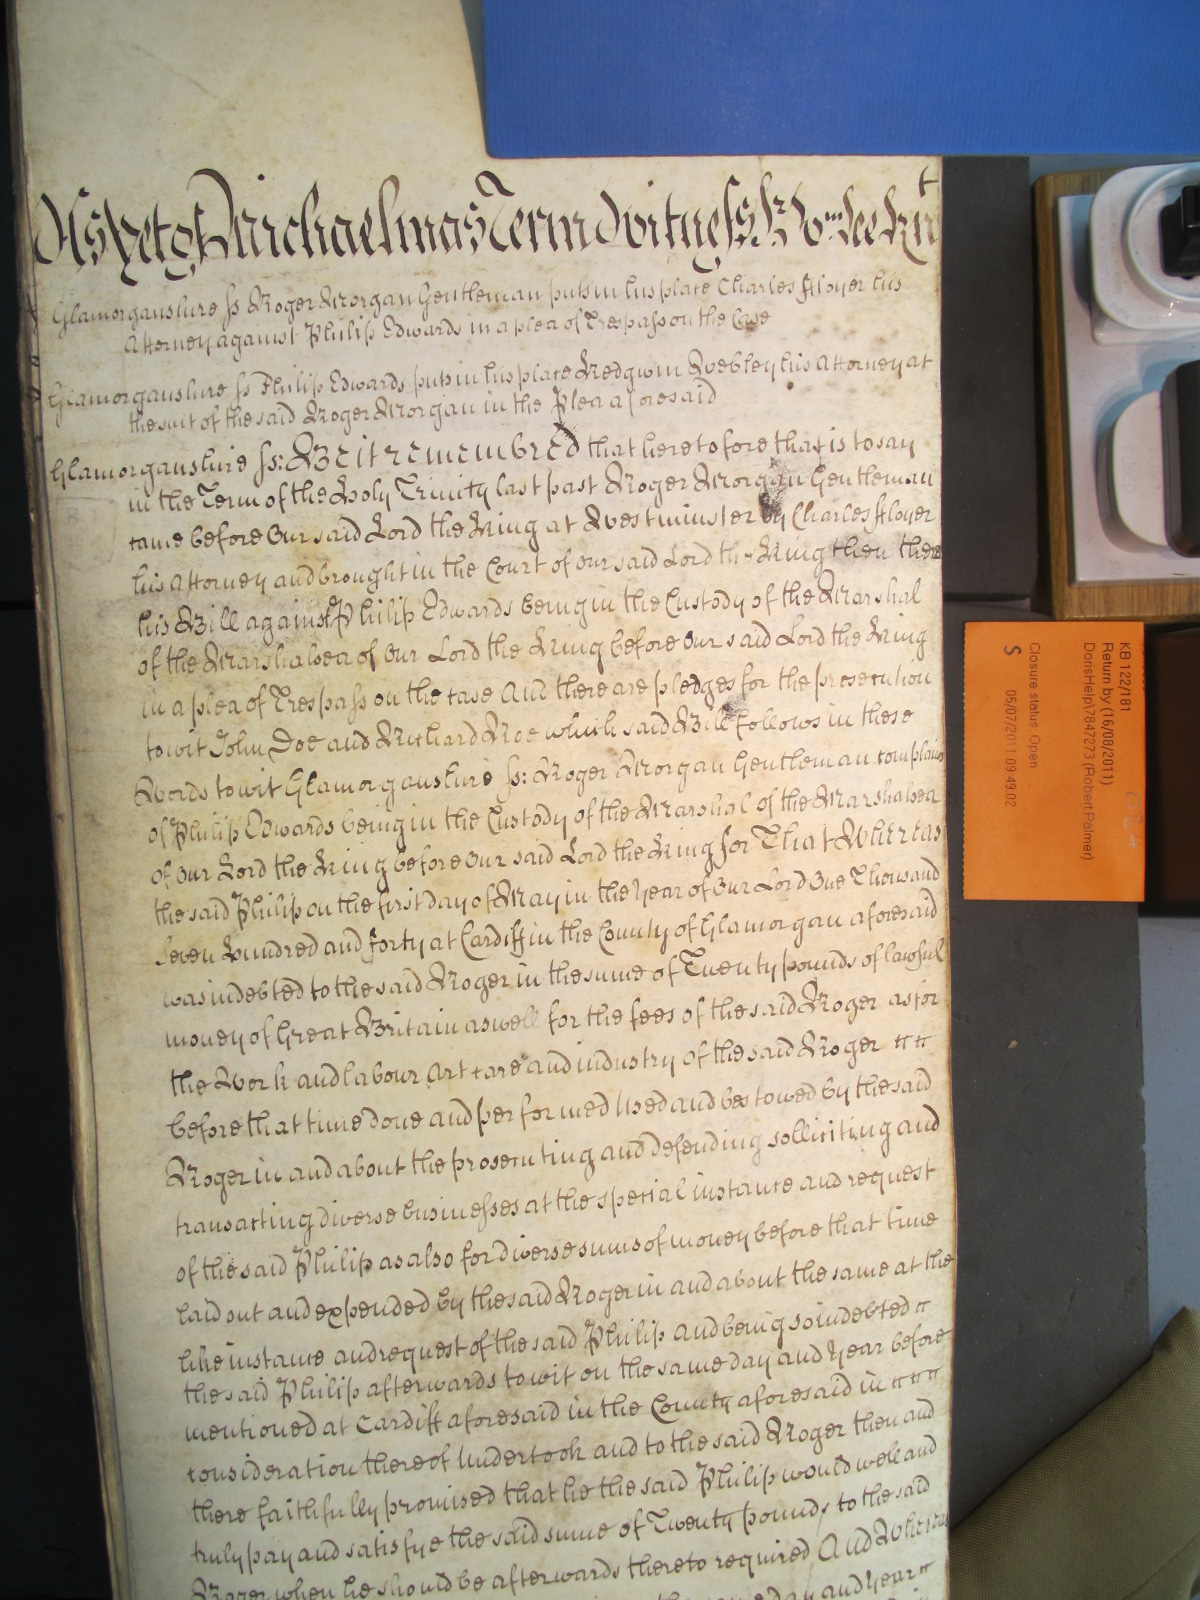 As yet of Michaelmas Term Witness Sr. Wm. Lee Knt
Glamorganshire ss Roger Morgan Gentleman puts in his place Charles Floyer his
Attorney against Philip Edwards in a plea of Trespass on the Case
Glamorganshire ss Philip Edwards puts in his place Webley his Attorney at
the suit of the said Roger Morgan in the Plea aforesaid
Glamorganshire ss: Be it remembred that heretofore that is to say
in the Term of the Holy Trinity last past Roger Morgan Gentleman
came before Our said Lord the King at Westminster by Charles Floyer
his Attorney and brought in the Court of our said Lord the King then there
his Bill against Philip Edwards being in the Custody of the Marshal
of the Marshalsea of Our Lord the King before Our said Lord the King
in a plea of Trespass on the case And there are pledges for the prosecution
to wit John Doe and Richard Roe which said Bill follows in these
Words to wit Glamorganshire ss: Roger Morgan Gentleman complains
of Philip Edwards being in the Custody of the Marshal of the Marshalsea
of Our Lord the King before Our said Lord the King for That Whereas
the said Philip on the first day of May in the Year of Our Lord One Thousand
Seven hundred and forty at Cardiff in the County of Glamorgan aforesaid
was indebted to the said Roger in the sume of Twenty pounds of lawful
money of Great Britain aswell for the fees of the said Roger as for
the Work and labour Art care and industry of the said Roger
before that time done and performed Used and bestowed by the said
Roger in and about the prosecuting and defending solliciting and
transacting diverse businesses at the special instance and request
of the said Philip as also for diverse sums of money before that time
laid out and expended by the said Roger in and about the same at the
like instance and request of the said Philip And being so indebted
the said Philip afterwards to wit on the same day and Year before
mentioned at Cardiff aforesaid in the County aforesaid in
consideration thereof Undertook and to the said Roger then and
there faithfully promised that he the said Philip would well and
truly pay and satisfye the said sume of Twenty pounds to the said
Roger when he should be afterwards thereto required And Whereas
same day and Year
KB 122/181
Return by (16/08/2011)
DorisHelp\7847273 (Robert Palmer)
Closure status: Open
S 05/07/2011 09:49:02